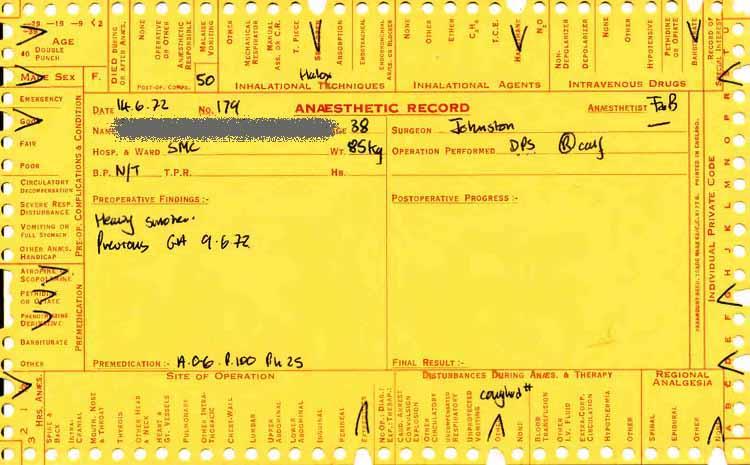 -39 -19 -9 <2
-39
AGE
40 DOUBLE PUNCH
MALE SEX F.
ADDED DURING OR AFTER ANÆS.
NONE
OPERATIVE OR OTHER
ANÆSTHETIC RESPONSIBLE
MALAISE VOMITING
OTHER
POST-OP. COMPS.
50
MECHANICAL RESPIRATOR
MANUAL ASS. OR C.R.
T. PIECE
ABSORPTION
ENDOTRACHEAL
ENDOBRONCHIAL OR BLOCKER
Halox
INHALATIONAL TECHNIQUES
NONE
OTHER
ETHER
C₃H₆
T.C.E.
N₂O
INHALATIONAL AGENTS
NONE
NON-DEPOLARIZER
DEPOLARIZER
OTHER
HYPOTENSIVE
PETHIDINE OR OPIATE
BARBITURATE
INTRAVENOUS DRUGS
RECORD OF SPECIAL INTEREST
DATE 14.6.72 No. 179 ANÆSTHETIC RECORD ANÆSTHETIST FoB
NAME AGE 38 SURGEON Johnston
HOSP. & WARD SMC WT. 85kg OPERATION PERFORMED DPS Ⓡ calf
B.P. N/T T.P.R. HB.
PREOPERATIVE FINDINGS :- POSTOPERATIVE PROGRESS :-
Heavy smoker.
Previous GA 9.6.72
PREMEDICATION :- A.0.6 P.100 Ph 25 FINAL RESULT :-
EMERGENCY
GOOD
FAIR
POOR
CIRCULATORY DECOMPENSATION
SEVERE RESP. DISTURBANCE
VOMITING OR FULL STOMACH
OTHER ANÆS. HANDICAP
PRE-OP. COMPLICATIONS & CONDITION
ATROPINE OR SCOPOLAMINE
PETHIDINE OR OPIATE
PHENOTHIAZINE DERIVATIVE
BARBITURATE
OTHER
PREMEDICATION
PRINTED IN ENGLAND.
INDIVIDUAL PRIVATE CODE
A B C D E F G H I J K L M N O P
3 2 1 0
HRS. ANÆS.
SITE OF OPERATION
SPINE & BACK
INTRA-CRANIAL
MOUTH, NOSE & THROAT
THYROID
OTHER HEAD & NECK
HEART & GT. VESSELS
PULMONARY
OTHER INTRA-THORACIC
CHEST-WALL
LUMBAR
UPPER ABDOMINAL
LOWER ABDOMINAL
INGUINAL
PERINEAL
EXTREMITIES
DISTURBANCES DURING ANÆS. & THERAPY
coughed #
NO OP. (DIAG. EXP.: THERAP.)
CARD. ARREST CONVULSION EXPLOSION
OTHER CIRCULATORY
UNEXPECTED RESPIRATORY
UNPROVOKED VOMITING
OTHER
NONE
BLOOD TRANSFUSION
OTHER I.V. FLUID
EXTRA-CORP. CIRCULATION
HYPOTHERMIA
OTHER
REGIONAL ANALGESIA
SPINAL
EPIDURAL
OTHER